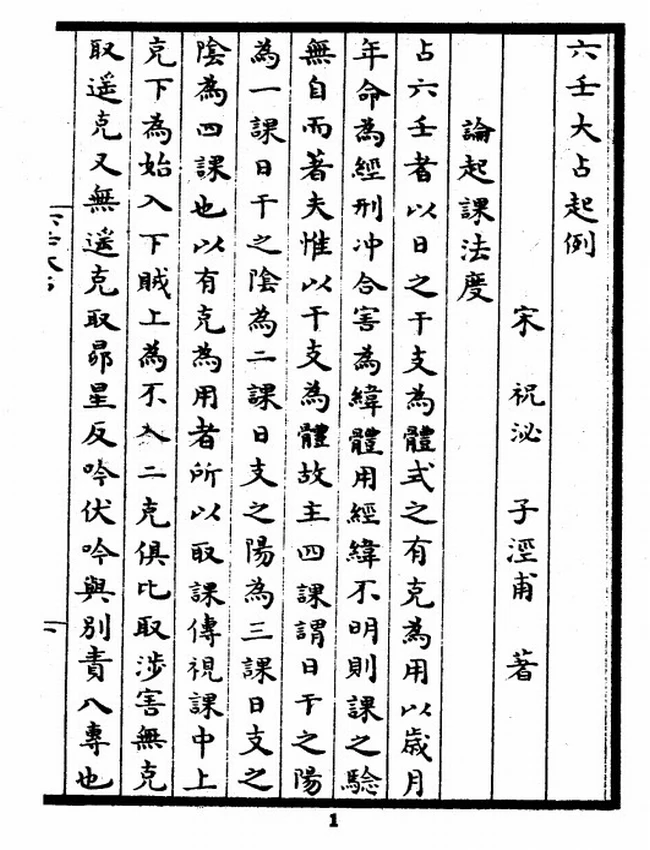 六壬大占起例
宋 祝泌 子涇甫 著
論起課法度
占六壬者以日之干支為體式之有克為用以歲月
年命為經刑冲合害為緯體用經緯不明則課之騐
無自而著夫惟以干支為體故主四課謂日干之陽
為一課日干之陰為二課日支之陽為三課日支之
陰為四課也以有克為用者所以取課傳視課中上
克下為始入下賊上為不入二克俱比取涉害無克
取遥克又無遥克取昴星反吟伏吟與別責八專也
1